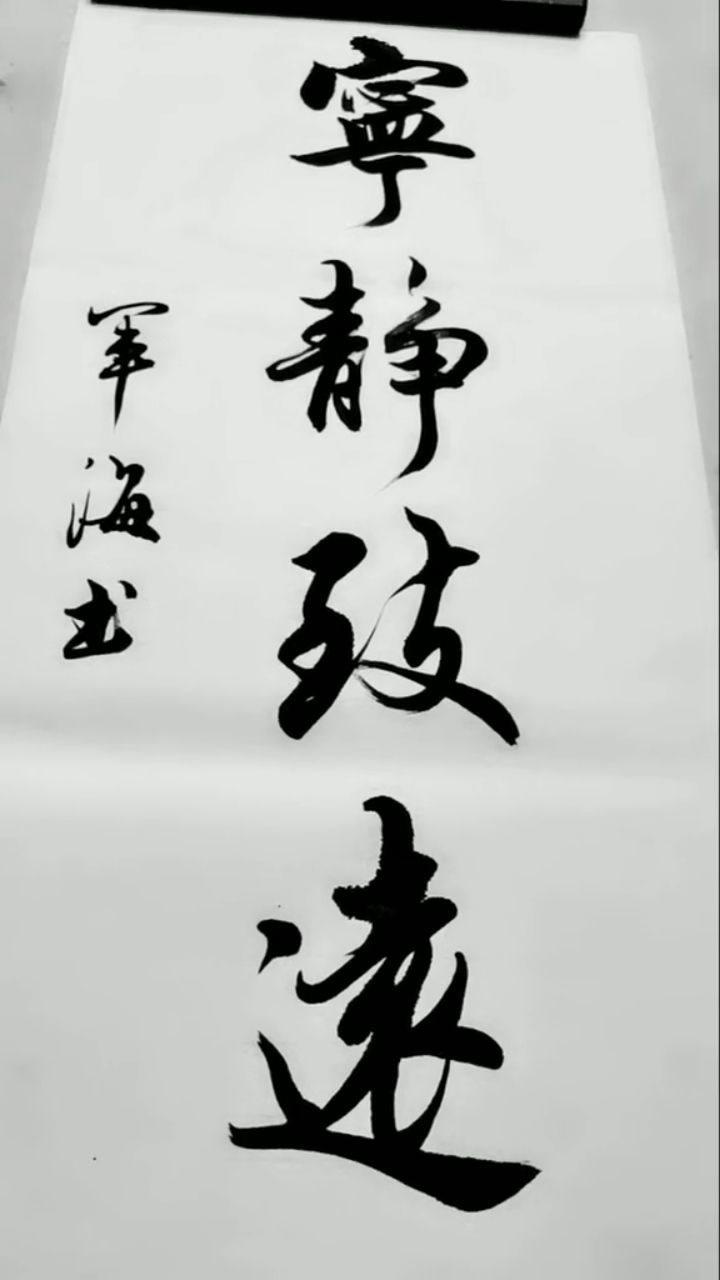 寧靜致遠
軍海书